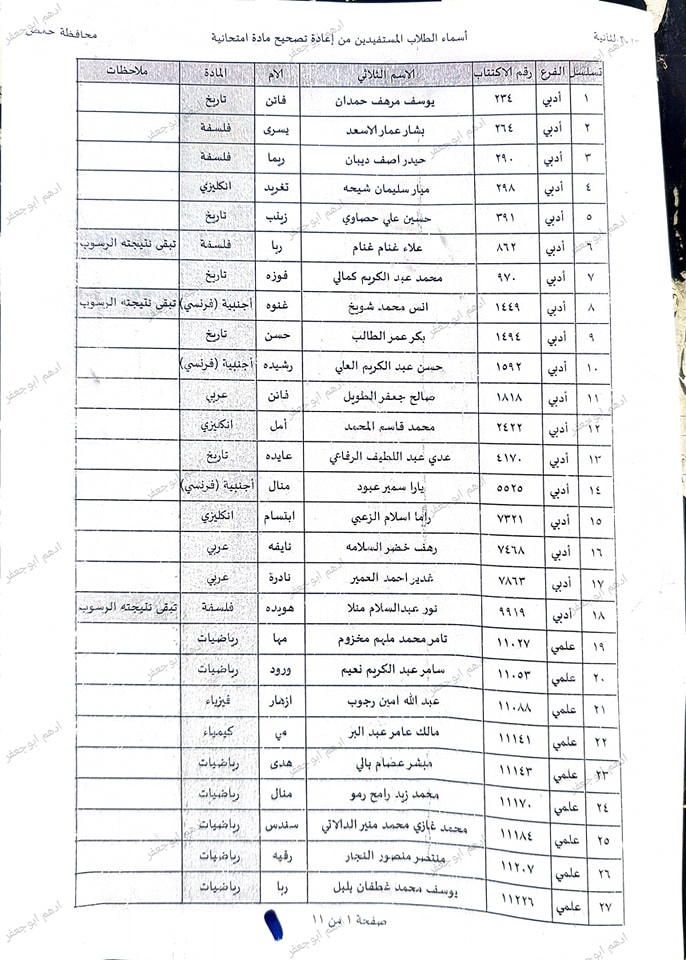 الثانية أسماء الطلاب المستفيدين من إعادة تصحيح مادة امتحانية محافظة حمص
تسلسل الفرع رقم الاكتتاب الاسم الثلاثي الام المادة ملاحظات
١ أدبي ٢٣٤ يوسف مرهف حمدان فاتن تاريخ
٢ أدبي ٢٦٤ بشار عمار الاسعد يسرى فلسفة
٣ أدبي ٢٩٠ حيدر اصف ديبان ريما فلسفة
٤ أدبي ٢٩٨ ميار سليمان شيحه تغريد انكليزي
٥ أدبي ٣٩١ حسين علي حصاوي زينب تاريخ
٦ أدبي ٨٦٢ علاء غنام غنام ربا فلسفة تبقى نتيجته الرسوب
٧ أدبي ٩٧٠ محمد عبد الكريم كمالي فوزه تاريخ
٨ أدبي ١٤٤٩ انس محمد شويخ غنوه أجنبية (فرنسي) تبقى نتيجته الرسوب
٩ أدبي ١٤٩٤ بكر عمر الطالب حسن تاريخ
١٠ أدبي ١٥٩٢ حسن عبد الكريم العلي رشيده أجنبية (فرنسي)
١١ أدبي ١٨١٨ صالح جعفر الطويل فاتن عربي
١٢ أدبي ٢٤٢٢ محمد قاسم المحمد أمل انكليزي
١٣ أدبي ٤١٧٠ عدي عبد اللطيف الرفاعي عايده تاريخ
١٤ أدبي ٥٥٢٥ يارا سمير عبود منال أجنبية (فرنسي)
١٥ أدبي ٧٣٢١ راما اسلام الزعبي ابتسام انكليزي
١٦ أدبي ٧٤٦٨ رهف خضر السلامه نايفه عربي
١٧ أدبي ٧٨٦٣ غدير احمد العمير نادرة عربي
١٨ أدبي ٩٩١٩ نور عبدالسلام منلا هويده فلسفة تبقى نتيجته الرسوب
١٩ علمي ١١٠٢٧ تامر محمد ملهم مخزوم مها رياضيات
٢٠ علمي ١١٠٥٣ سامر عبد الكريم نعيم ورود رياضيات
٢١ علمي ١١٠٨٨ عبد الله امين رجوب ازهار فيزياء
٢٢ علمي ١١١٤١ مالك عامر عبد البر مي كيمياء
٢٣ علمي ١١١٤٣ مبشر عصام بالي هدى رياضيات
٢٤ علمي ١١١٧٠ محمد زيد رامح رمو منال رياضيات
٢٥ علمي ١١١٨٤ محمد غازي محمد منير الدالاتي سندس رياضيات
٢٦ علمي ١١٢٠٧ منتصر منصور النجار رقيه رياضيات
٢٧ علمي ١١٢٢٦ يوسف محمد غطفان بلبل ربا رياضيات
صفحة ١ من ١١
ادهم ابوجعفر